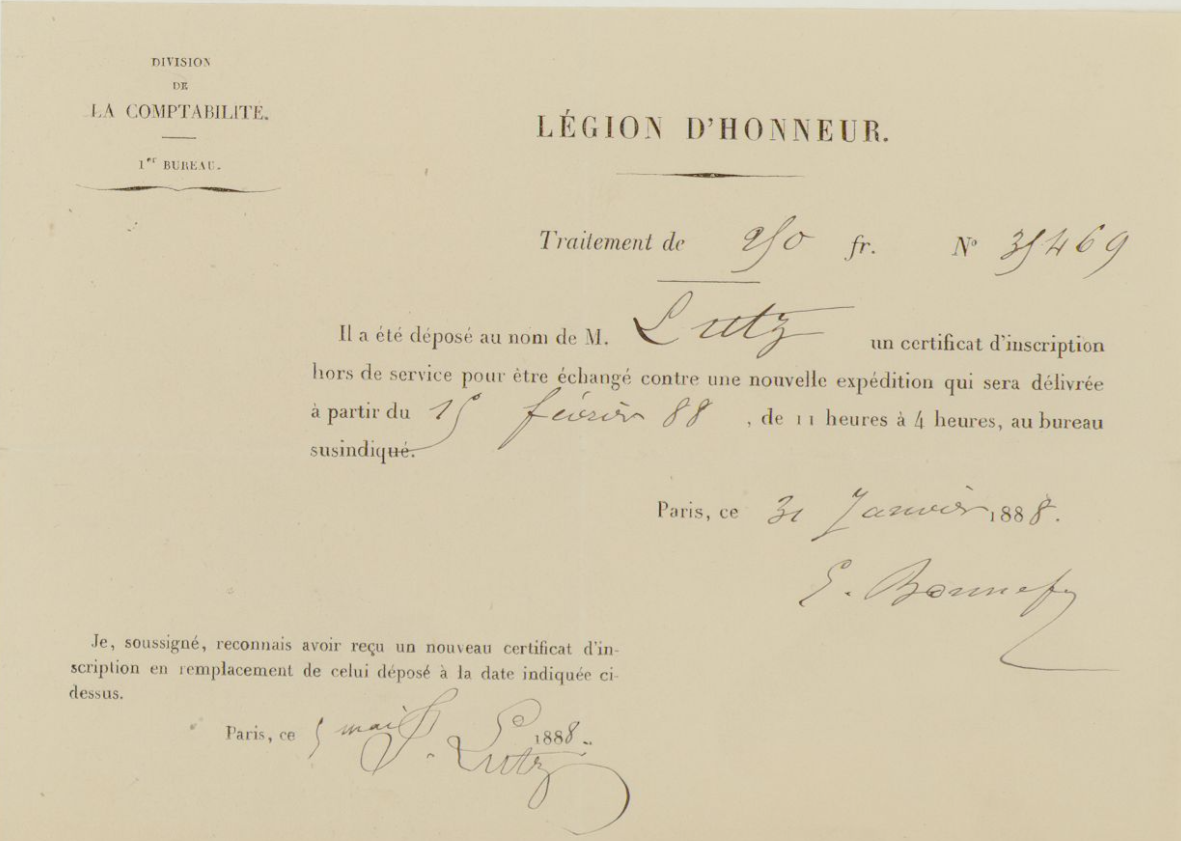 DIVISION
DE
LA COMPTABILITÉ.
1er BUREAU.
LÉGION D'HONNEUR.
Traitement de 250 fr. N° 35469
Il a été déposé au nom de M. Lutz un certificat d'inscription
hors de service pour être échangé contre une nouvelle expédition qui sera délivrée
à partir du 15 février 88, de 11 heures à 4 heures, au bureau
susindiqué.
Paris, ce 31 Janvier 1888.
E. Bonnefoy
Je, soussigné, reconnais avoir reçu un nouveau certificat d'in-
scription en remplacement de celui déposé à la date indiquée ci-
dessus.
Paris, ce 5 mai 1888.
Lutz